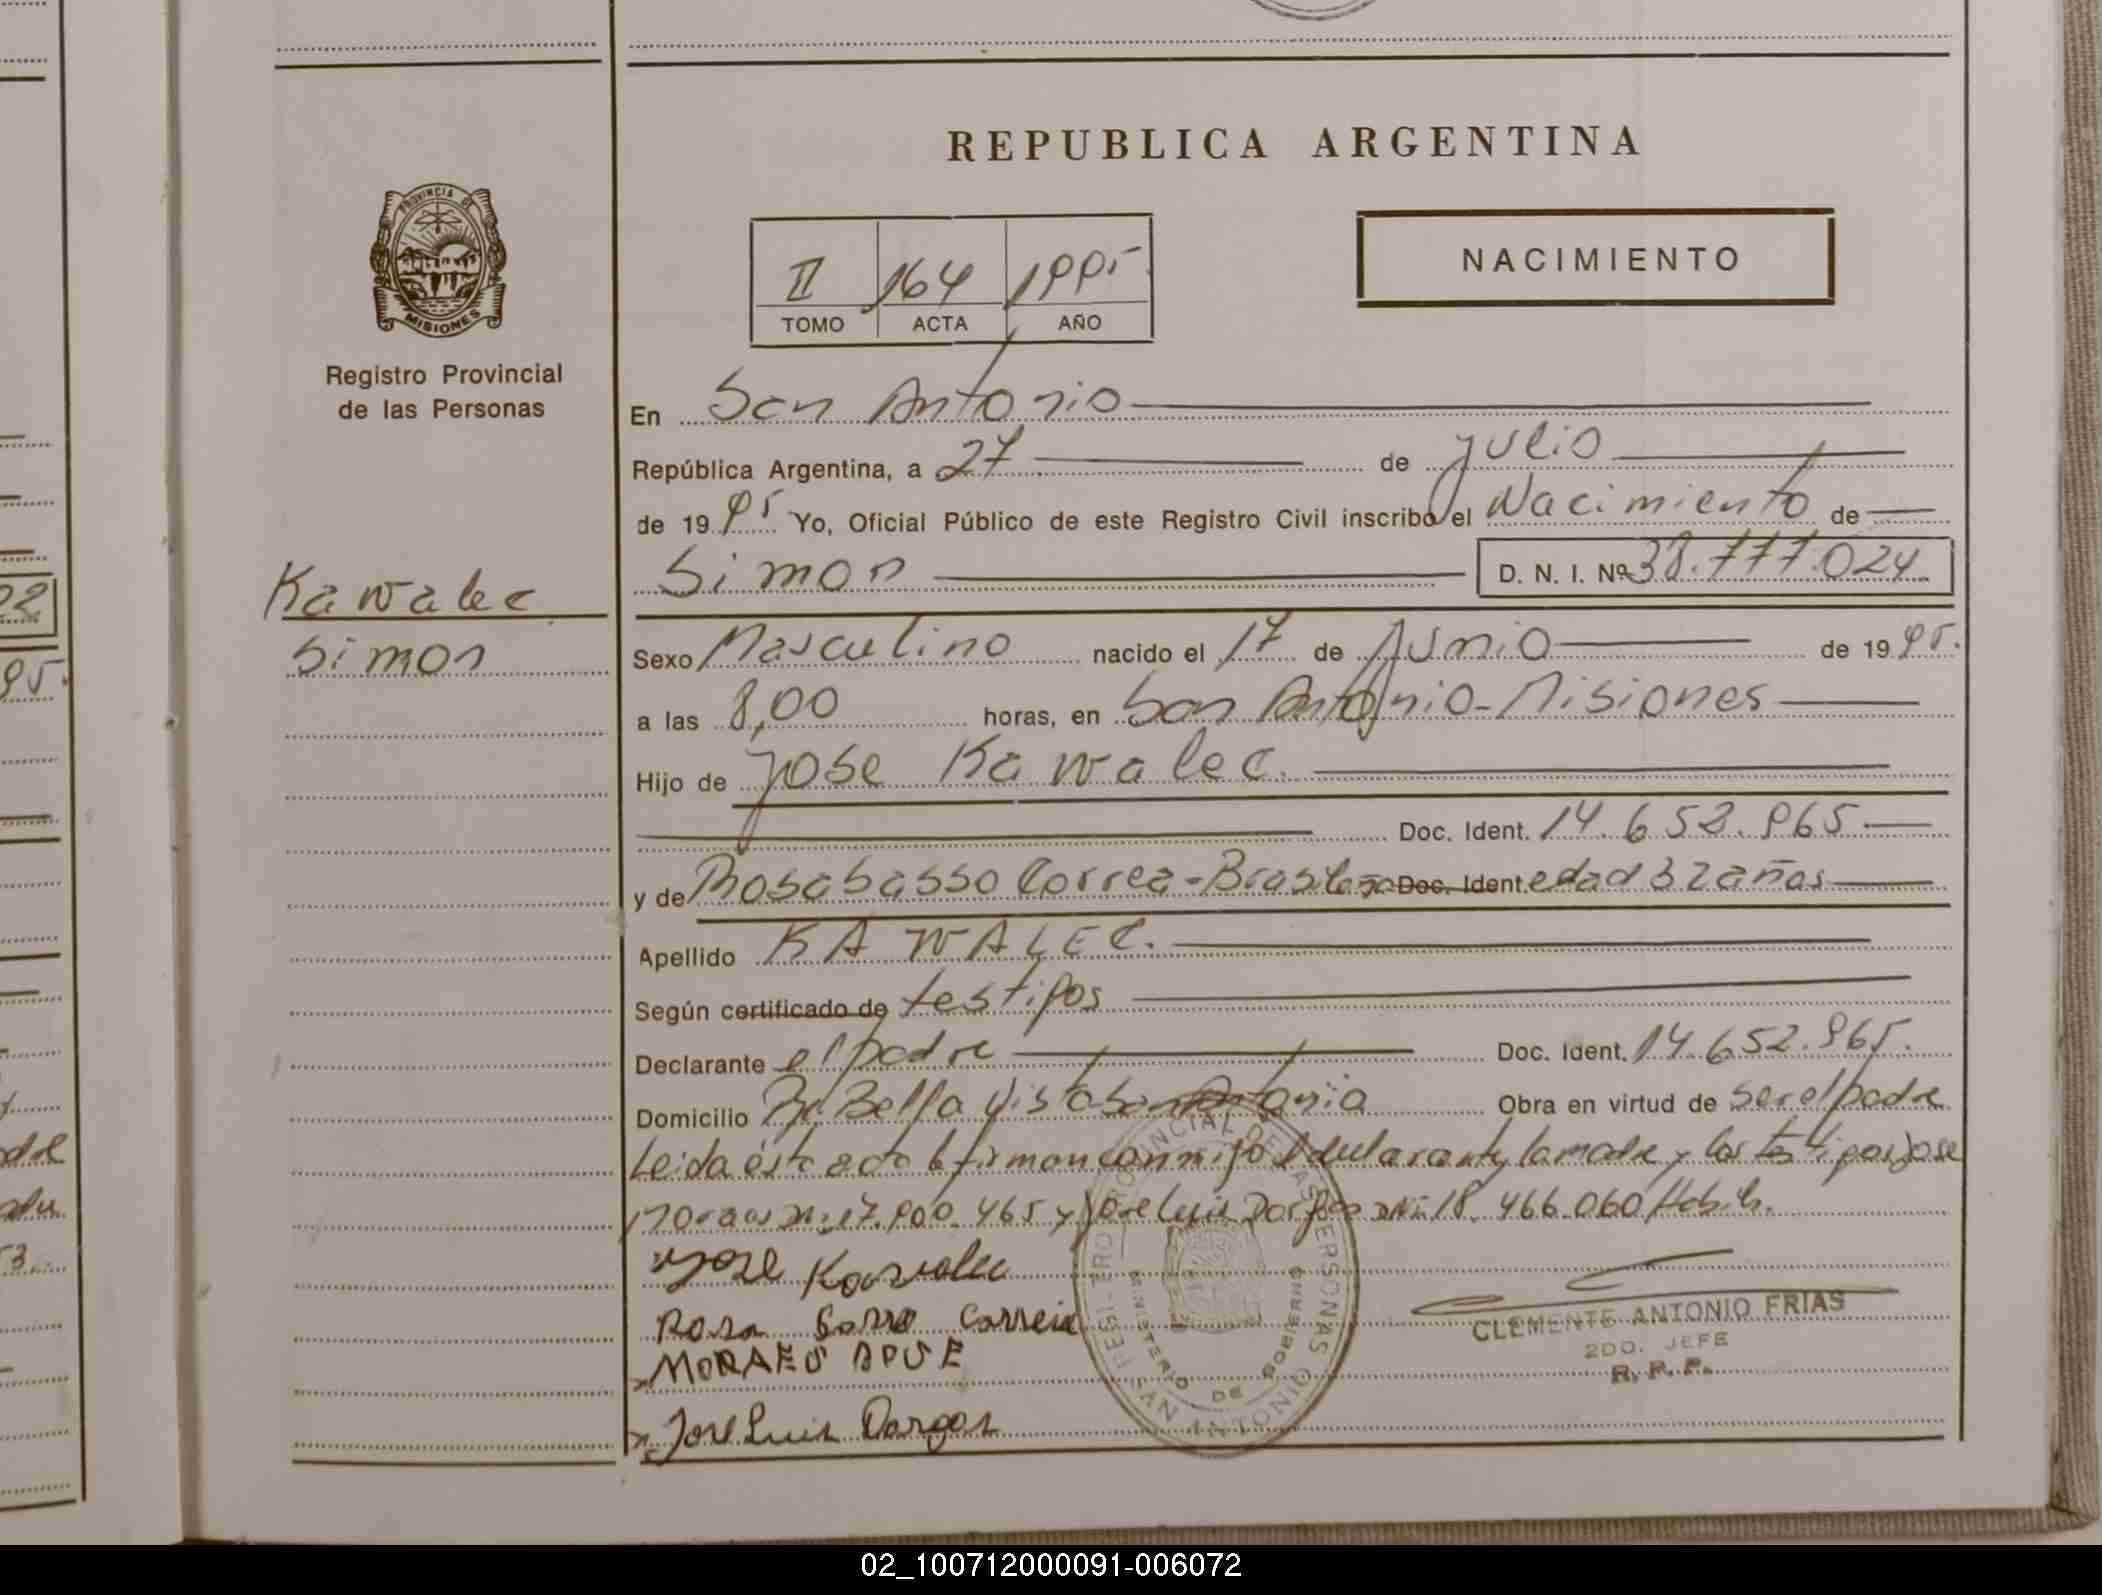 REPUBLICA ARGENTINA
PROVINCIA DE
MISIONES
Registro Provincial
de las Personas
II 164 1995
TOMO ACTA AÑO
NACIMIENTO
En San Antonio
República Argentina, a 27 de julio
de 1995 Yo, Oficial Público de este Registro Civil inscribo el Nacimiento de
Simon D. N. I. Nº 38.777.024
Kawalec
Simon
Sexo Masculino nacido el 17 de Junio de 1995.
a las 8,00 horas, en San Antonio - Misiones
Hijo de Jose Kawalec.
Doc. Ident. 14.652.965
y de Rosa Sasso Correa - Brasileña Doc. Ident edad 32 años
Apellido KAWALEC.
Según certificado de testigos
Declarante el padre Doc. Ident. 14.652.965.
Domicilio Bella Vista San Antonio Obra en virtud de ser el padre
Leida ésta acta firman conmigo el declarante, la madre y los testigos Jose
465 y Jose Luis DNI: 18.466.060
Jose Kawalec
Rosa Sasso Correia
MORAES
CLEMENTE ANTONIO FRIAS
2DO. JEFE
R. P. P.
Jose Luis Dargos
MINISTERIO DE GOBIERNO
SAN ANTONIO
22
95.
02_100712000091-006072